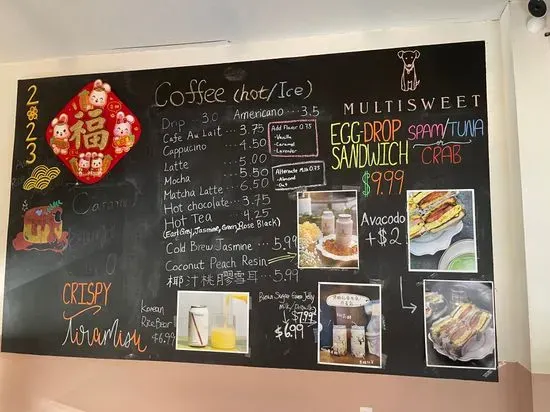 2
0
2
3
福
Coffee (hot/Ice)
Drip ... 3.0 Americano ... 3.5
Café Au Lait ... 3.75
Cappucino ... 4.50
Latte ... 5.00
Mocha ... 5.50
Matcha Latte ... 6.50
Hot chocolate ... 3.75
Hot Tea ... 4.25
(Earl Grey, Jasmine, Green, Rose Black)
Cold Brew Jasmine ... 5.99
Coconut Peach Resin
椰汁桃膠雪耳 ... 5.99
Add Flavor 0.75
- Vanilla
- Caramel
- Lavender
Alternate Milk 0.75
- Almond
- Oat
MULTISWEET
EGG-DROP
SANDWICH
$9.99
SPAM/TUNA
or
CRAB
Avacodo
+ $2
CRISPY
Tiramisu
Korean
Rice Beer
$6.99
$7.99
$6.99